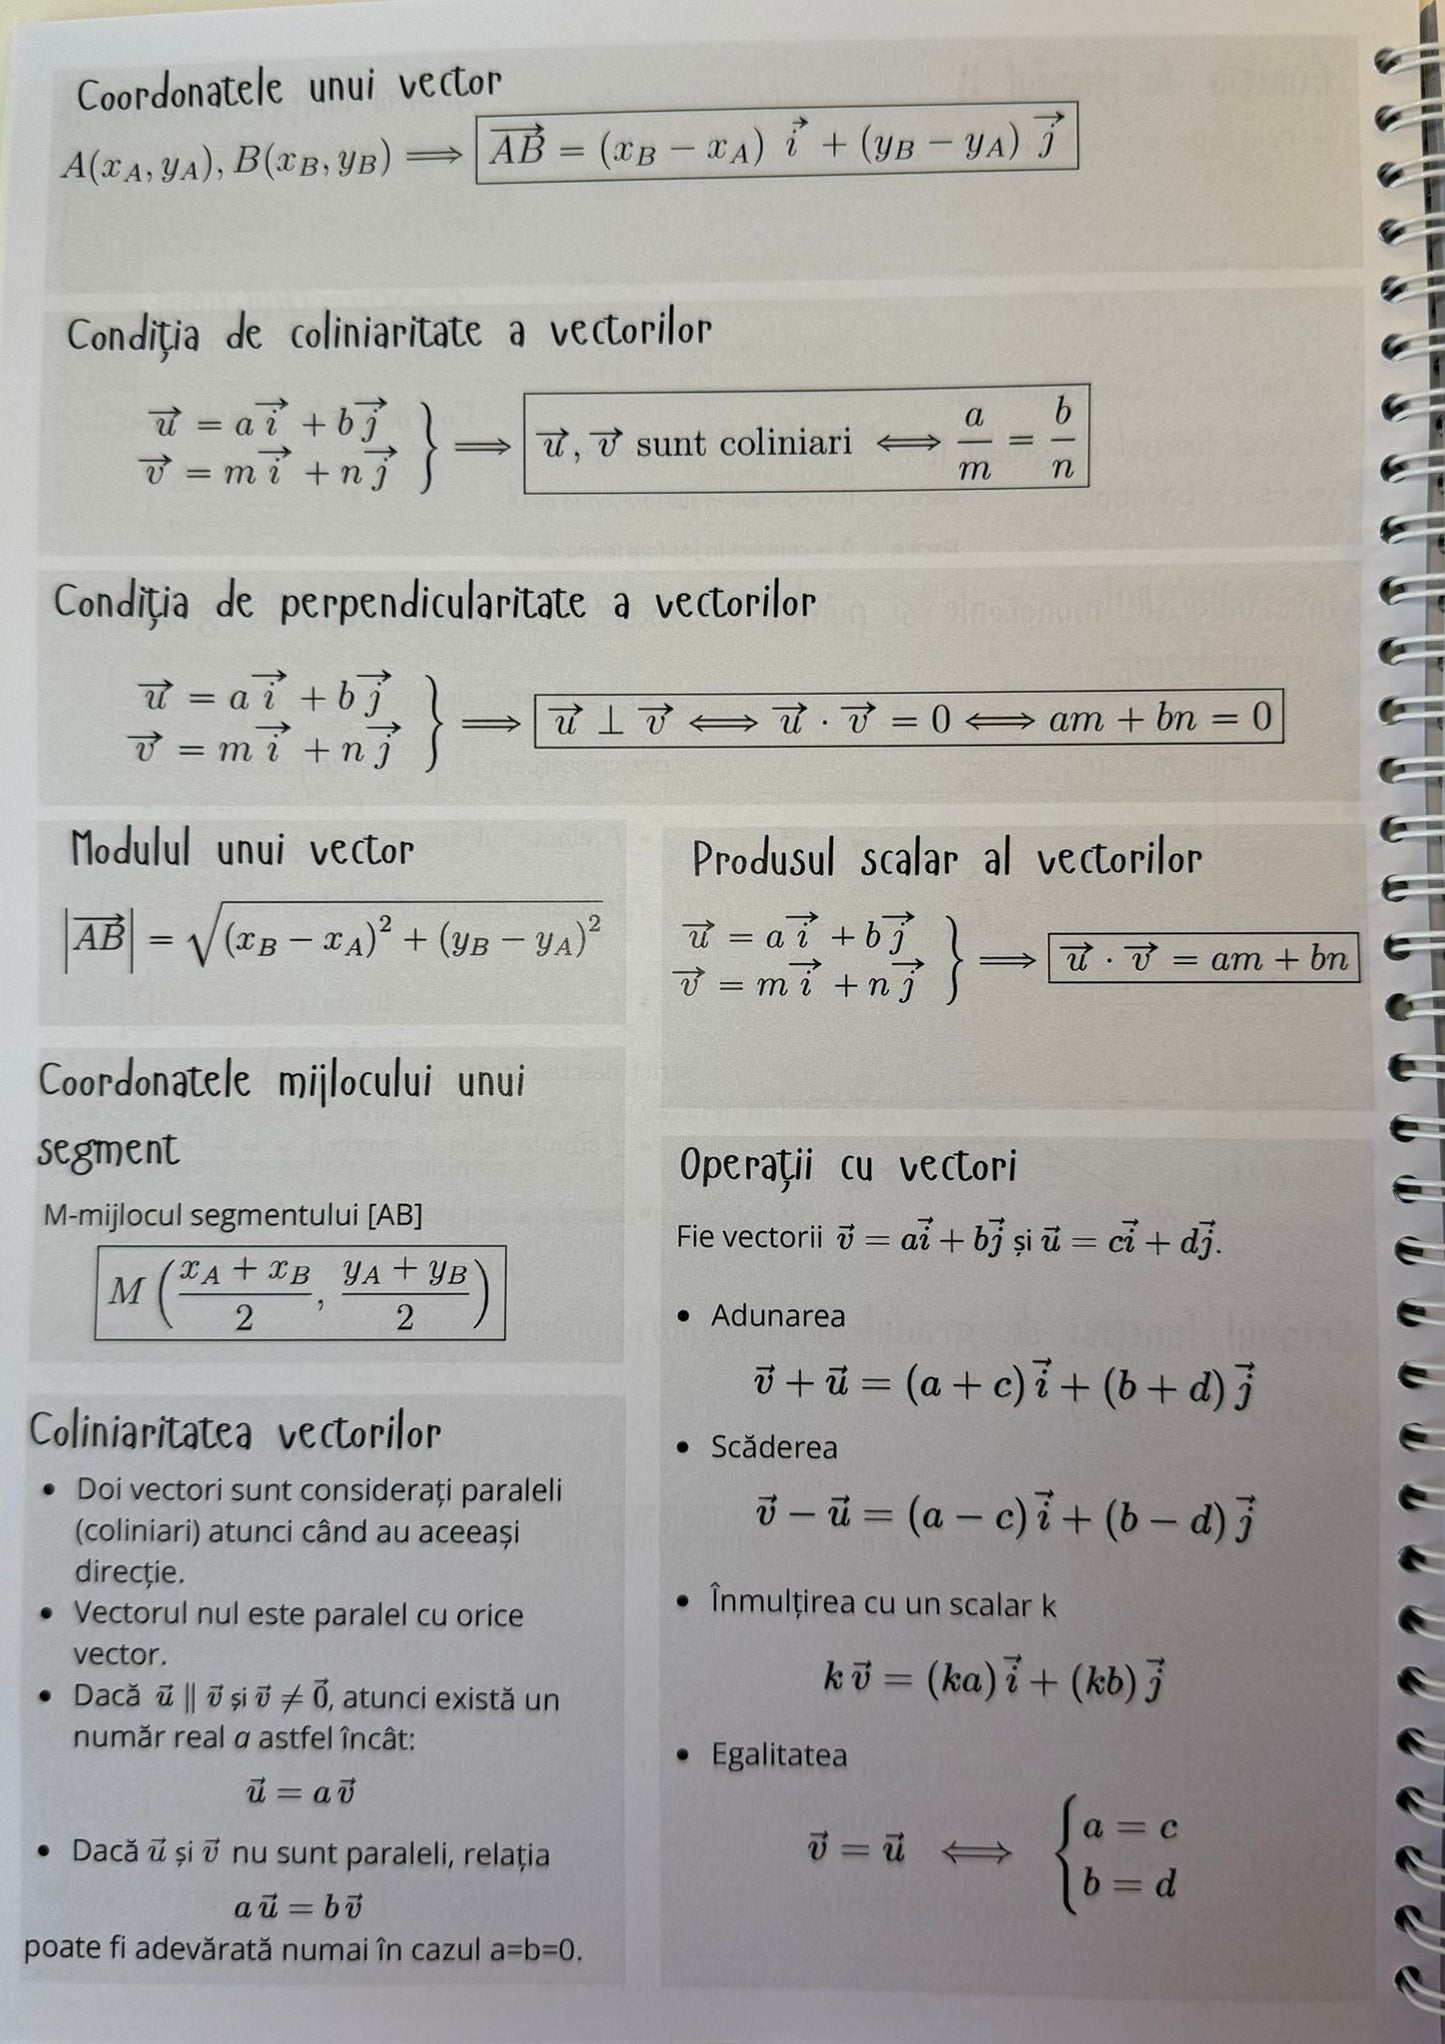 Coordonatele unui vector
A(x_A, y_A), B(x_B, y_B) ⟹ \overrightarrow{AB} = (x_B − x_A) \vec{i} + (y_B − y_A) \vec{j}
Condiția de coliniaritate a vectorilor
\vec{u} = a\vec{i} + b\vec{j}
\vec{v} = m\vec{i} + n\vec{j} } ⟹ \vec{u}, \vec{v} sunt coliniari ⟺ \frac{a}{m} = \frac{b}{n}
Condiția de perpendicularitate a vectorilor
\vec{u} = a\vec{i} + b\vec{j}
\vec{v} = m\vec{i} + n\vec{j} } ⟹ \vec{u} ⊥ \vec{v} ⟺ \vec{u} · \vec{v} = 0 ⟺ am + bn = 0
Modulul unui vector
|\overrightarrow{AB}| = \sqrt{(x_B − x_A)^2 + (y_B − y_A)^2}
Coordonatele mijlocului unui
segment
M-mijlocul segmentului [AB]
M (\frac{x_A + x_B}{2}, \frac{y_A + y_B}{2})
Coliniaritatea vectorilor
• Doi vectori sunt considerați paraleli
(coliniari) atunci când au aceeași
direcție.
• Vectorul nul este paralel cu orice
vector.
• Dacă \vec{u} ∥ \vec{v} și \vec{v} ≠ \vec{0}, atunci există un
număr real a astfel încât:
\vec{u} = a\vec{v}
• Dacă \vec{u} și \vec{v} nu sunt paraleli, relația
a\vec{u} = b\vec{v}
poate fi adevărată numai în cazul a=b=0.
Produsul scalar al vectorilor
\vec{u} = a\vec{i} + b\vec{j}
\vec{v} = m\vec{i} + n\vec{j} } ⟹ \vec{u} · \vec{v} = am + bn
Operații cu vectori
Fie vectorii \vec{v} = a\vec{i} + b\vec{j} și \vec{u} = c\vec{i} + d\vec{j}.
• Adunarea
\vec{v} + \vec{u} = (a + c)\vec{i} + (b + d)\vec{j}
• Scăderea
\vec{v} − \vec{u} = (a − c)\vec{i} + (b − d)\vec{j}
• Înmulțirea cu un scalar k
k\vec{v} = (ka)\vec{i} + (kb)\vec{j}
• Egalitatea
\vec{v} = \vec{u} ⟺ { a = c
b = d